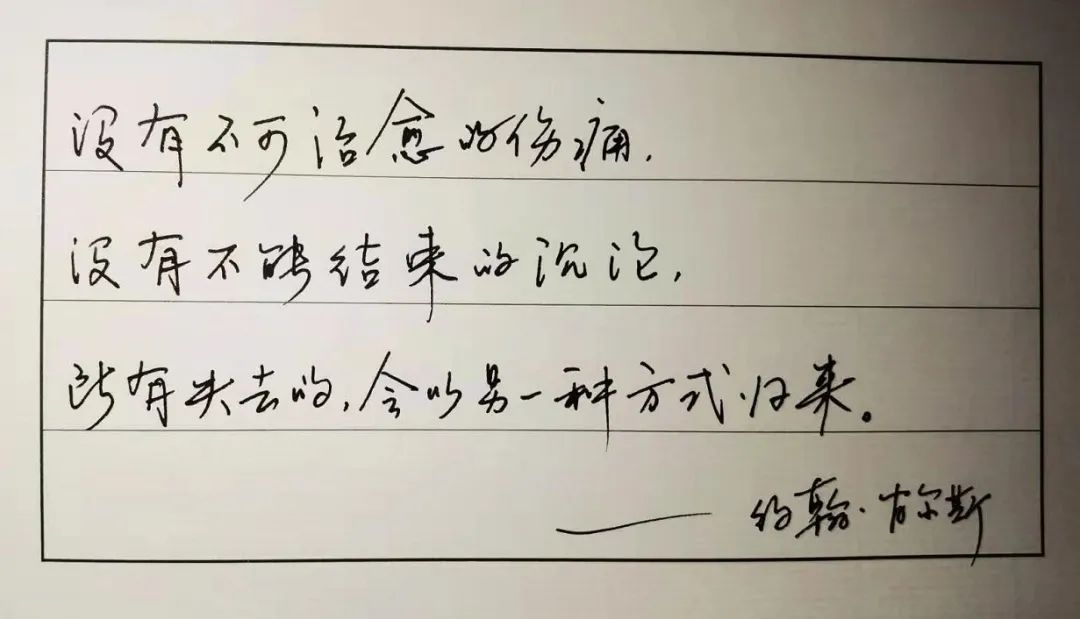 没有不可治愈的伤痛,
没有不能结束的沉沦,
所有失去的,会以另一种方式归来。
——约翰·肖尔斯